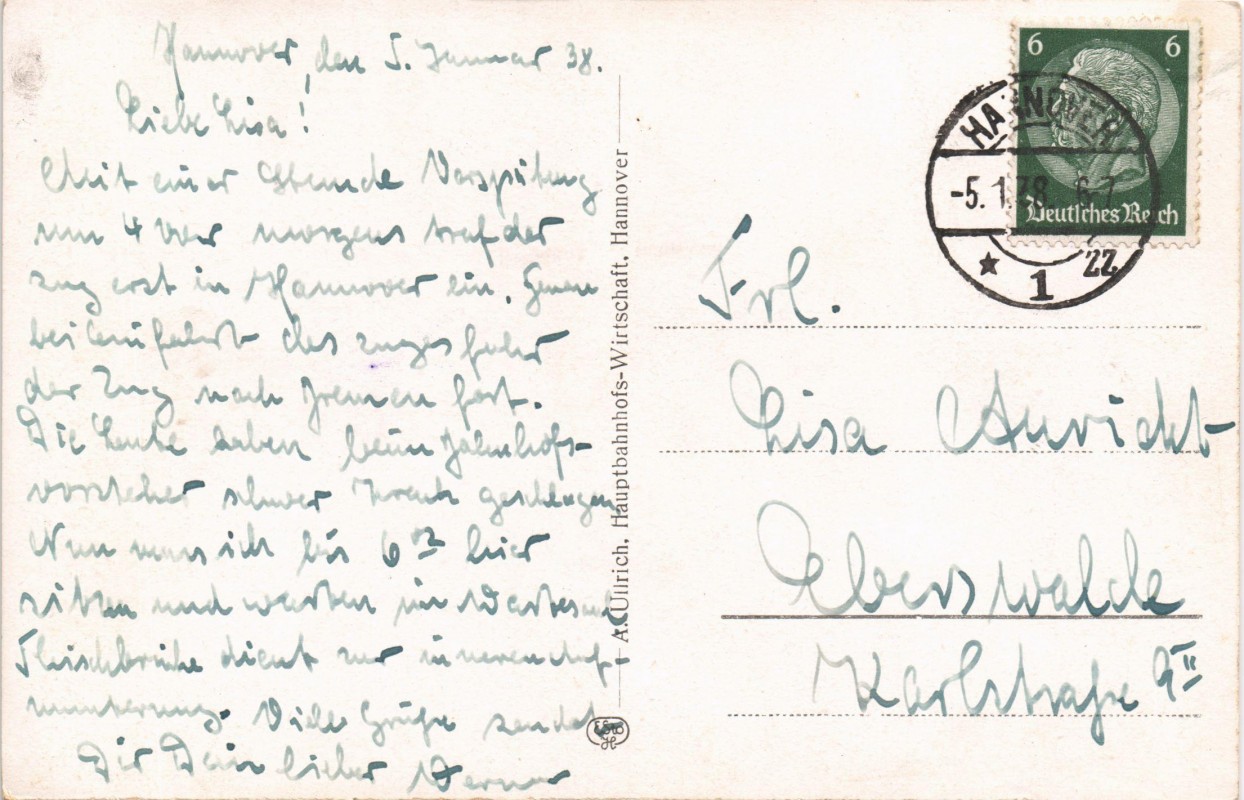 Hannover, den 5. Januar 38.
Liebe Lisa!
Mit einer Stunde Verspätung
um 4 Uhr morgens traf der
Zug erst in Hannover ein. Genau
bei Einfahrt des Zuges fuhr
der Zug nach Bremen fort.
Die Leute haben beim Bahnhofs-
vorsteher schwer Krach geschlagen.
Nun muss ich bis 6 02 hier
sitzen und warten im Wartesaal
Fleischbrühe dient zur inneren Auf-
munterung. Viele Grüße sendet
Dir Dein lieber Werner
A. Ullrich, Hauptbahnhofs-Wirtschaft, Hannover
6 6
Deutsches Reich
HANNOVER
-5.1.38. 6-7
* 1 zz
Frl.
Lisa
Eberswalde
Karlstraße 9 II